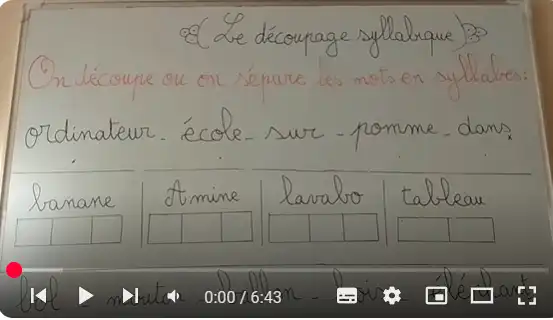 Le découpage syllabique
On découpe ou on sépare les mots en syllabes:
ordinateur - école - sur - pomme - dans
banane Amine lavabo tableau
bol - mouton - ballon - bois - éléphant
0:00 / 6:43